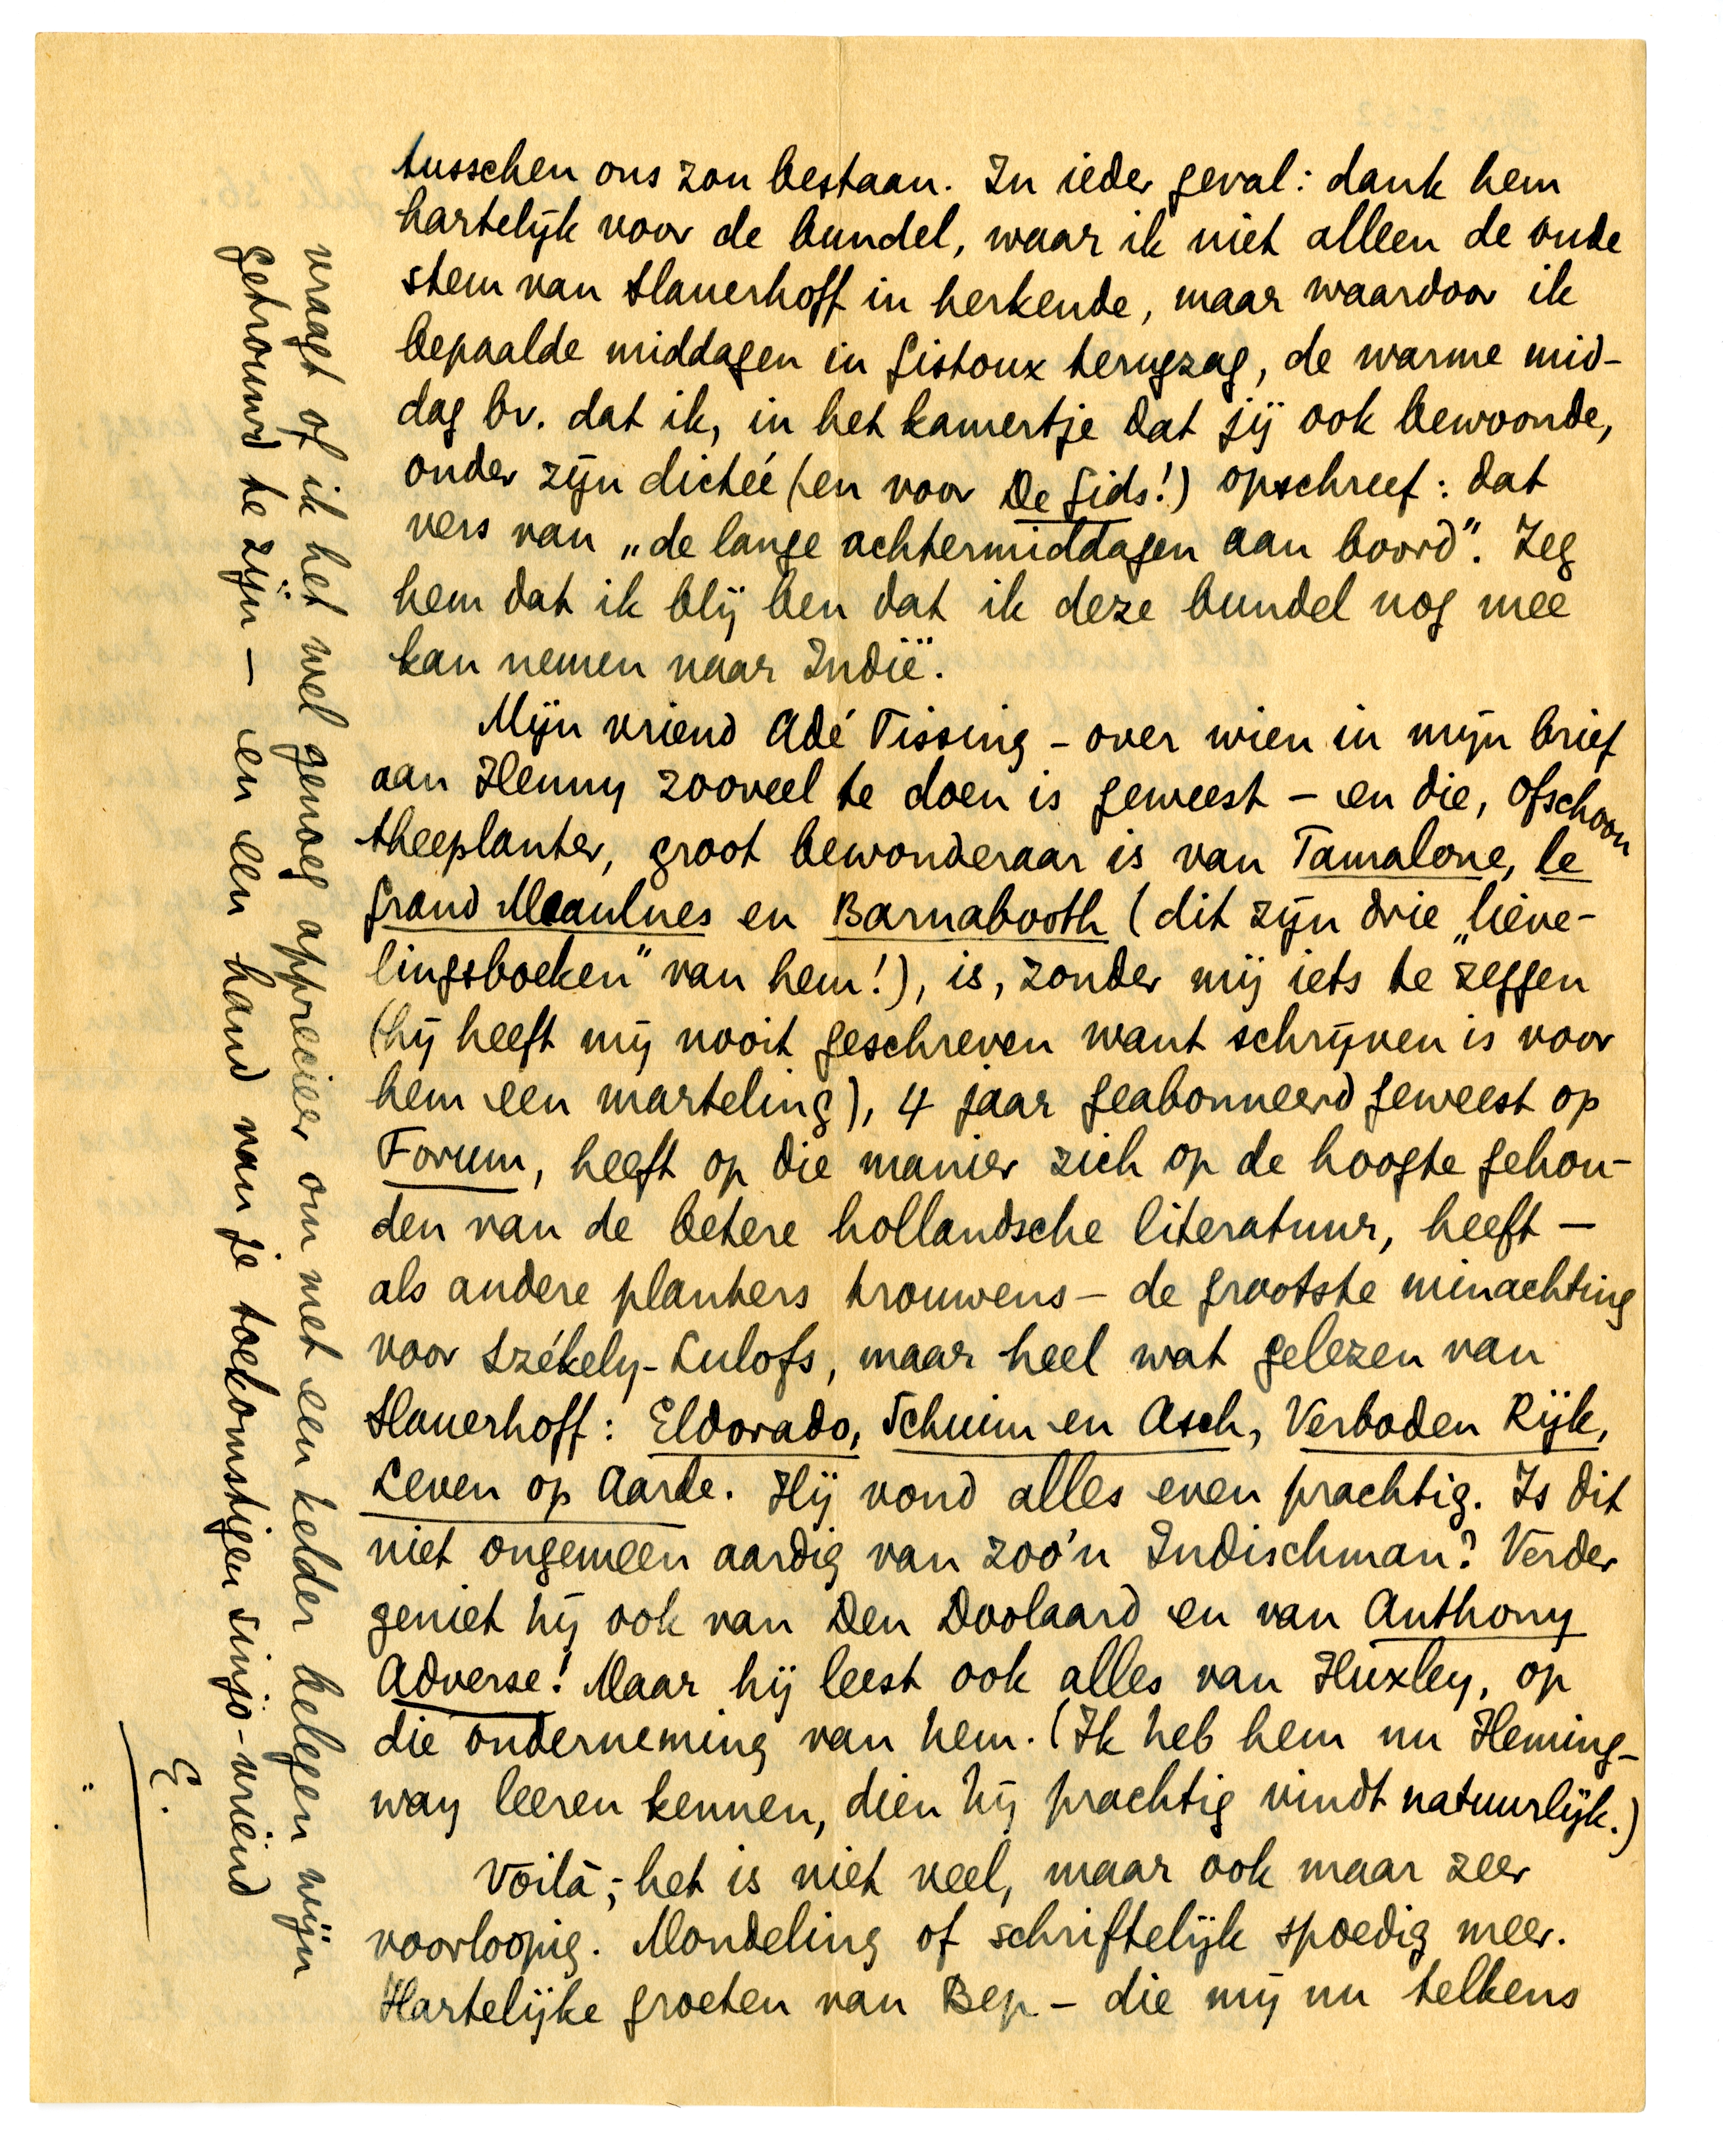 tusschen ons zou bestaan. In ieder geval: dank hem
hartelijk voor de bundel, waar ik niet alleen de oude
stem van Slauerhoff in herkende, maar waardoor ik
bepaalde middagen in Gistoux terugzag, de warme mid-
dag bv. dat ik, in het kamertje dat jij ook bewoonde,
onder zijn dictéé (en voor De Gids!) opschreef: dat
vers van „de lange achtermiddagen aan boord". Zeg
hem dat ik blij ben dat ik deze bundel nog mee
kan nemen naar Indië.
Mijn vriend Adé Tissing - over wien in mijn brief
aan Henny zooveel te doen is geweest - en die, ofschoon
theeplanter, groot bewonderaar is van Tamalone, le
Grand Meaulnes en Barnabooth (dit zijn drie „lieve-
lingsboeken" van hem!), is, zonder mij iets te zeggen
(hij heeft mij nooit geschreven want schrijven is voor
hem een marteling), 4 jaar geabonneerd geweest op
Forum, heeft op die manier zich op de hoogte gehou-
den van de betere hollandsche literatuur, heeft -
als andere planters trouwens - de grootste minachting
voor Székely-Lulofs, maar heel wat gelezen van
Slauerhoff: Eldorado, Schuim en Asch, Verboden Rijk,
Leven op Aarde. Hij vond alles even prachtig. Is dit
niet ongemeen aardig van zoo'n Indischman? Verder
geniet hij ook van Den Doolaard en van Anthony
Adverse! Maar hij leest ook alles van Huxley, op
die onderneming van hem. (Ik heb hem nu Heming-
way leeren kennen, dien hij prachtig vindt natuurlijk.)
Voilà; - het is niet veel, maar ook maar zeer
voorloopig. Mondeling of schriftelijk spoedig meer.
Hartelijke groeten van Bep - die mij nu telkens
vraagt of ik het wel genoeg apprecieer om met een kelder belegen wijn
getrouwd te zijn - en een hand van je toekomstigen sinjo-vriend
E.